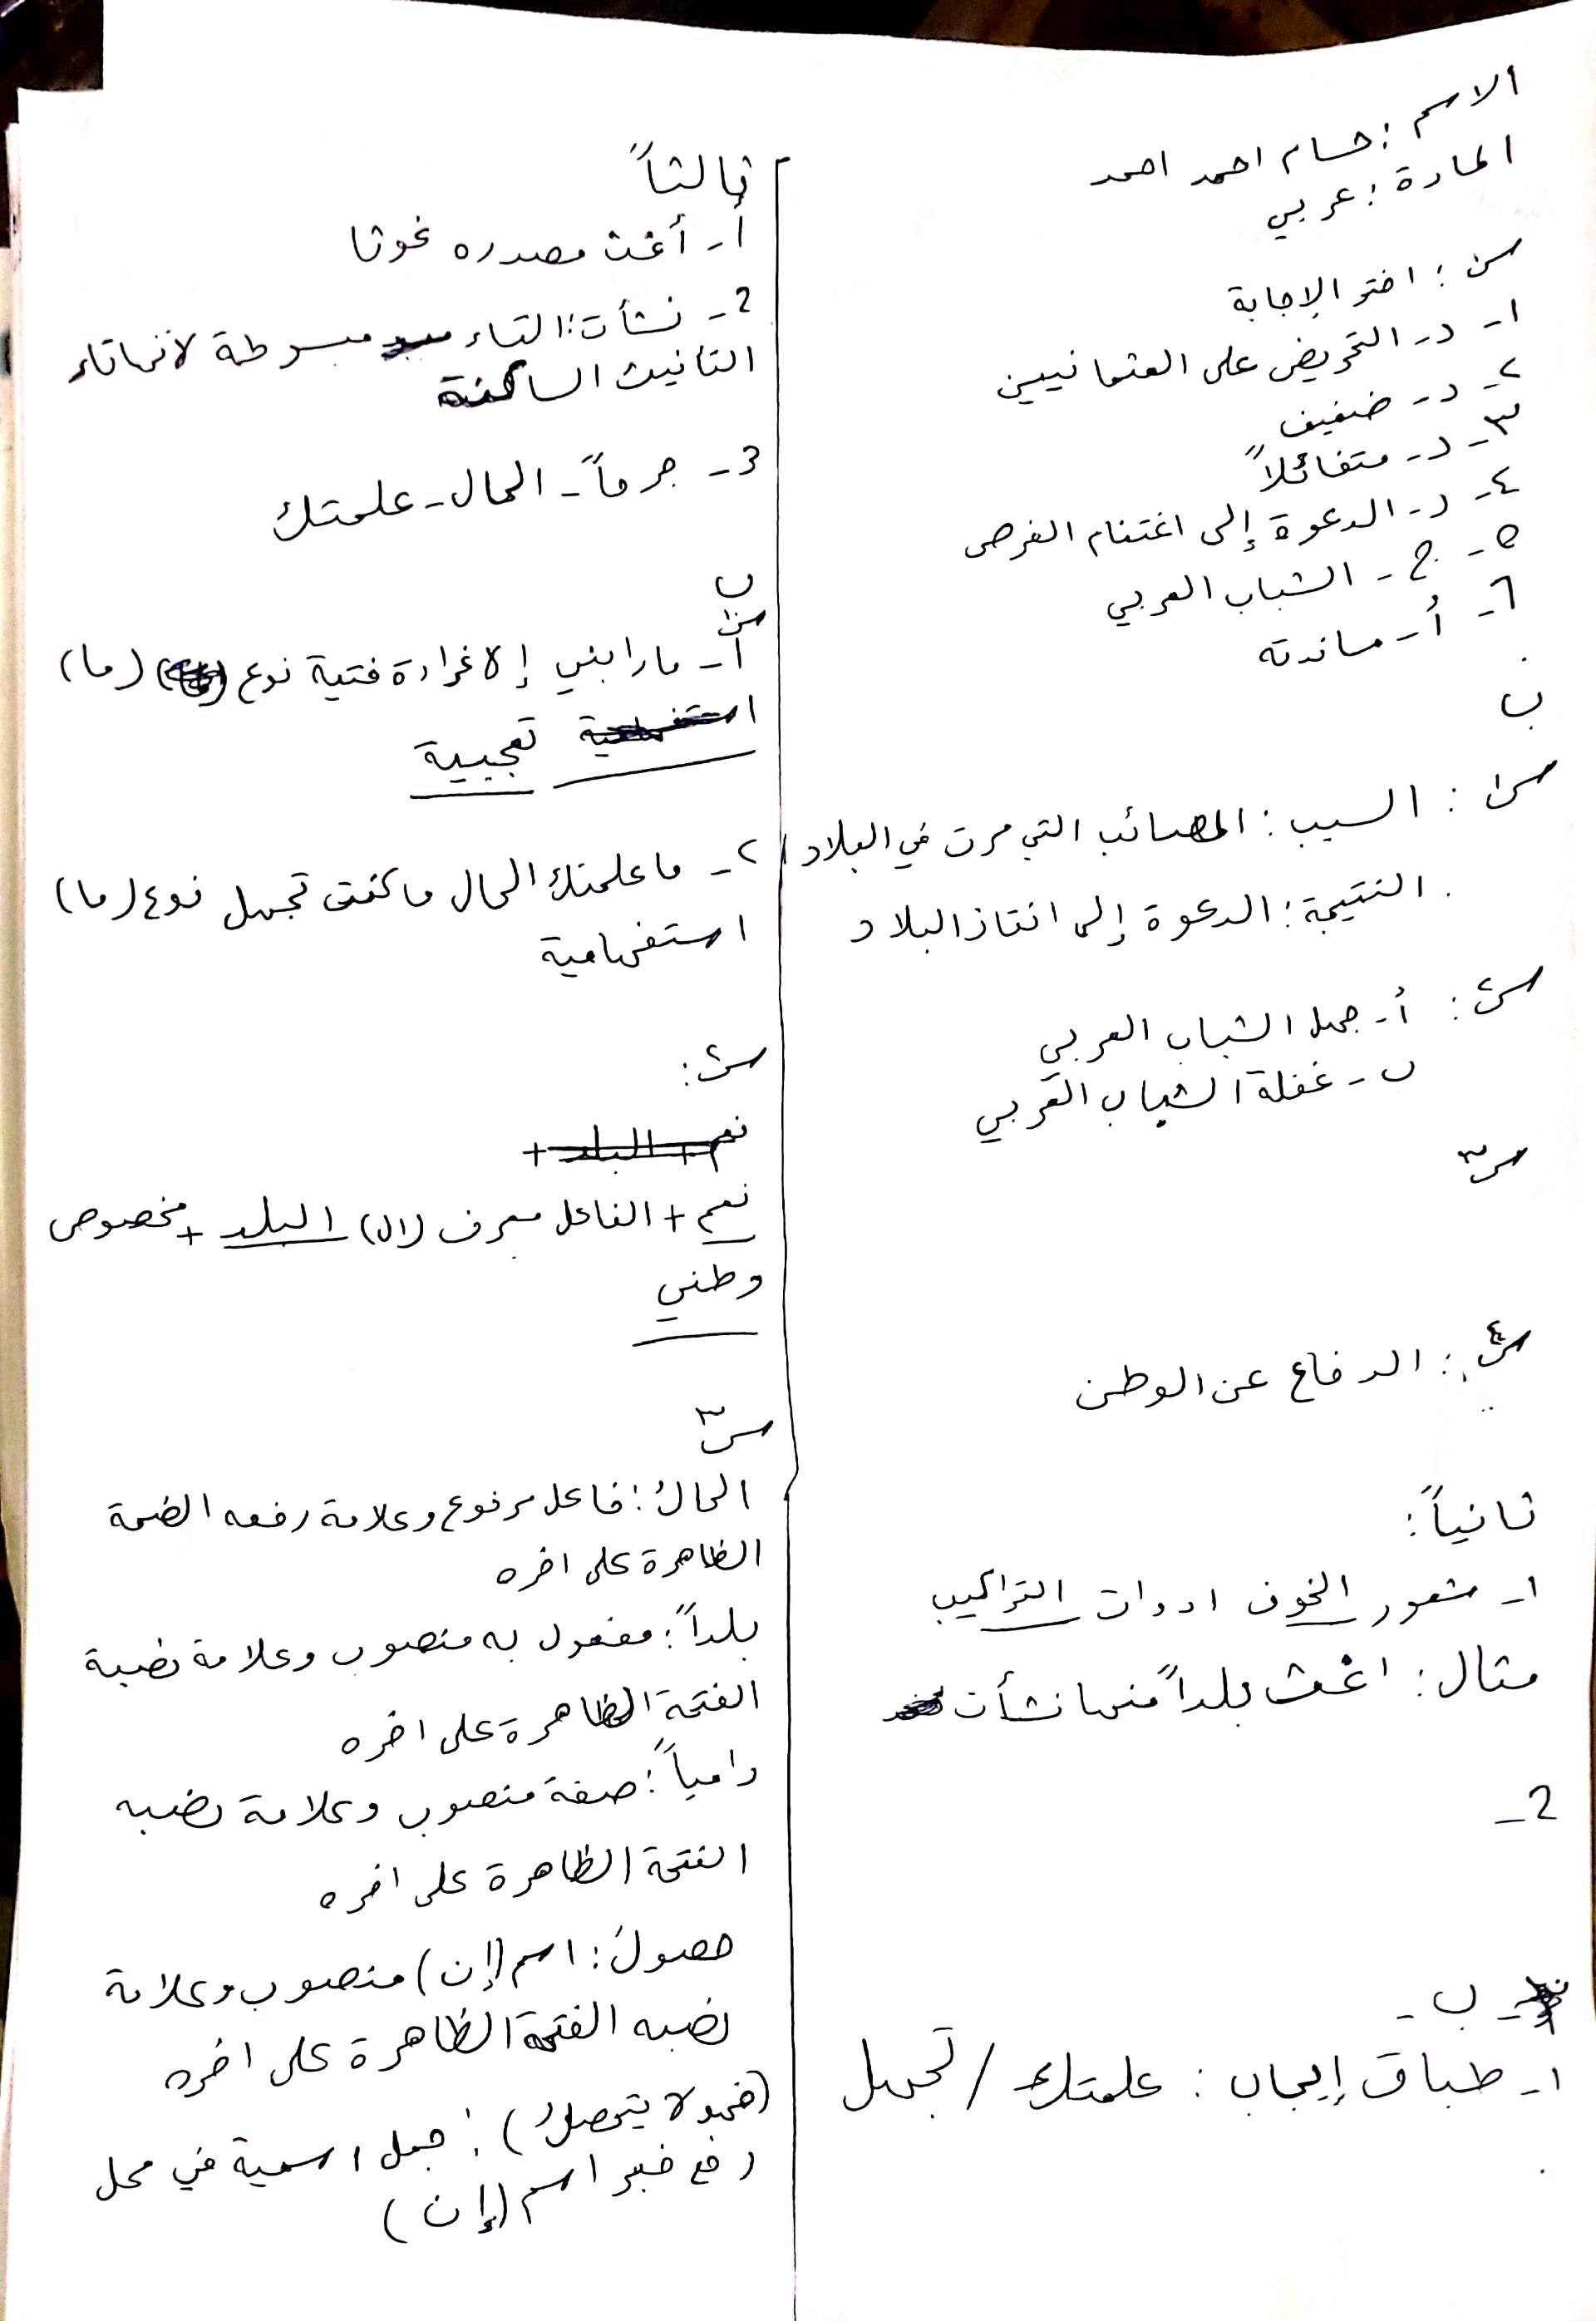 الاسم : حسام احمد احمد
المادة : عربي
س١ : اختر الإجابة
١- د- التحريض على العثمانيين
٢- د- ضفيف
٣- د- متفائلاً
٤- د- الدعوة إلى اغتنام الفرص
٥- ج- الشباب العربي
٦- أ- ساندته
ب
س١ : السبب : المصائب التي مرت في البلاد
النتيجة : الدعوة إلى انتاز البلاد
س٢ : أ- جهل الشباب العربي
ب- غفلة الشباب العربي
س٣
س٤ : الدفاع عن الوطن
ثانياً :
١- شعور الخوف ادوات التراكيب
مثال : اغث بلداً منها نشأت
2-
ب-
١- طباق إيجاب : علمتك / تجهل
ثالثاً
أ- أغث مصدره غوثا
2- نشأت : التاء مبسوطة لانها تاء
التأنيث الساكنة
3- جرماً - الحال - علمتك
ب
س١
أ- ما رابني إلا غرارة فتية نوع (ما)
تعجبية
٢- ما علمتك الحال ما كنت تجهل نوع (ما)
استفهامية
س٢ :
نعم + البلد +
نعم + الفاعل معرف (ال) البلد + مخصوص
وطني
س٣
الحالُ : فاعل مرفوع وعلامة رفعه الضمة
الظاهرة على اخره
بلداً : مفعول به منصوب وعلامة نصبة
الفتحة الظاهرة على اخره
دامياً : صفة منصوب وعلامة نصبه
الفتحة الظاهرة على اخره
حصولَ : اسم (إن) منصوب وعلامة
نصبه الفتحة الظاهرة على اخره
(فهو لا يتحصلُ) : جمل اسمية في محل
رفع خبر اسم (إن)